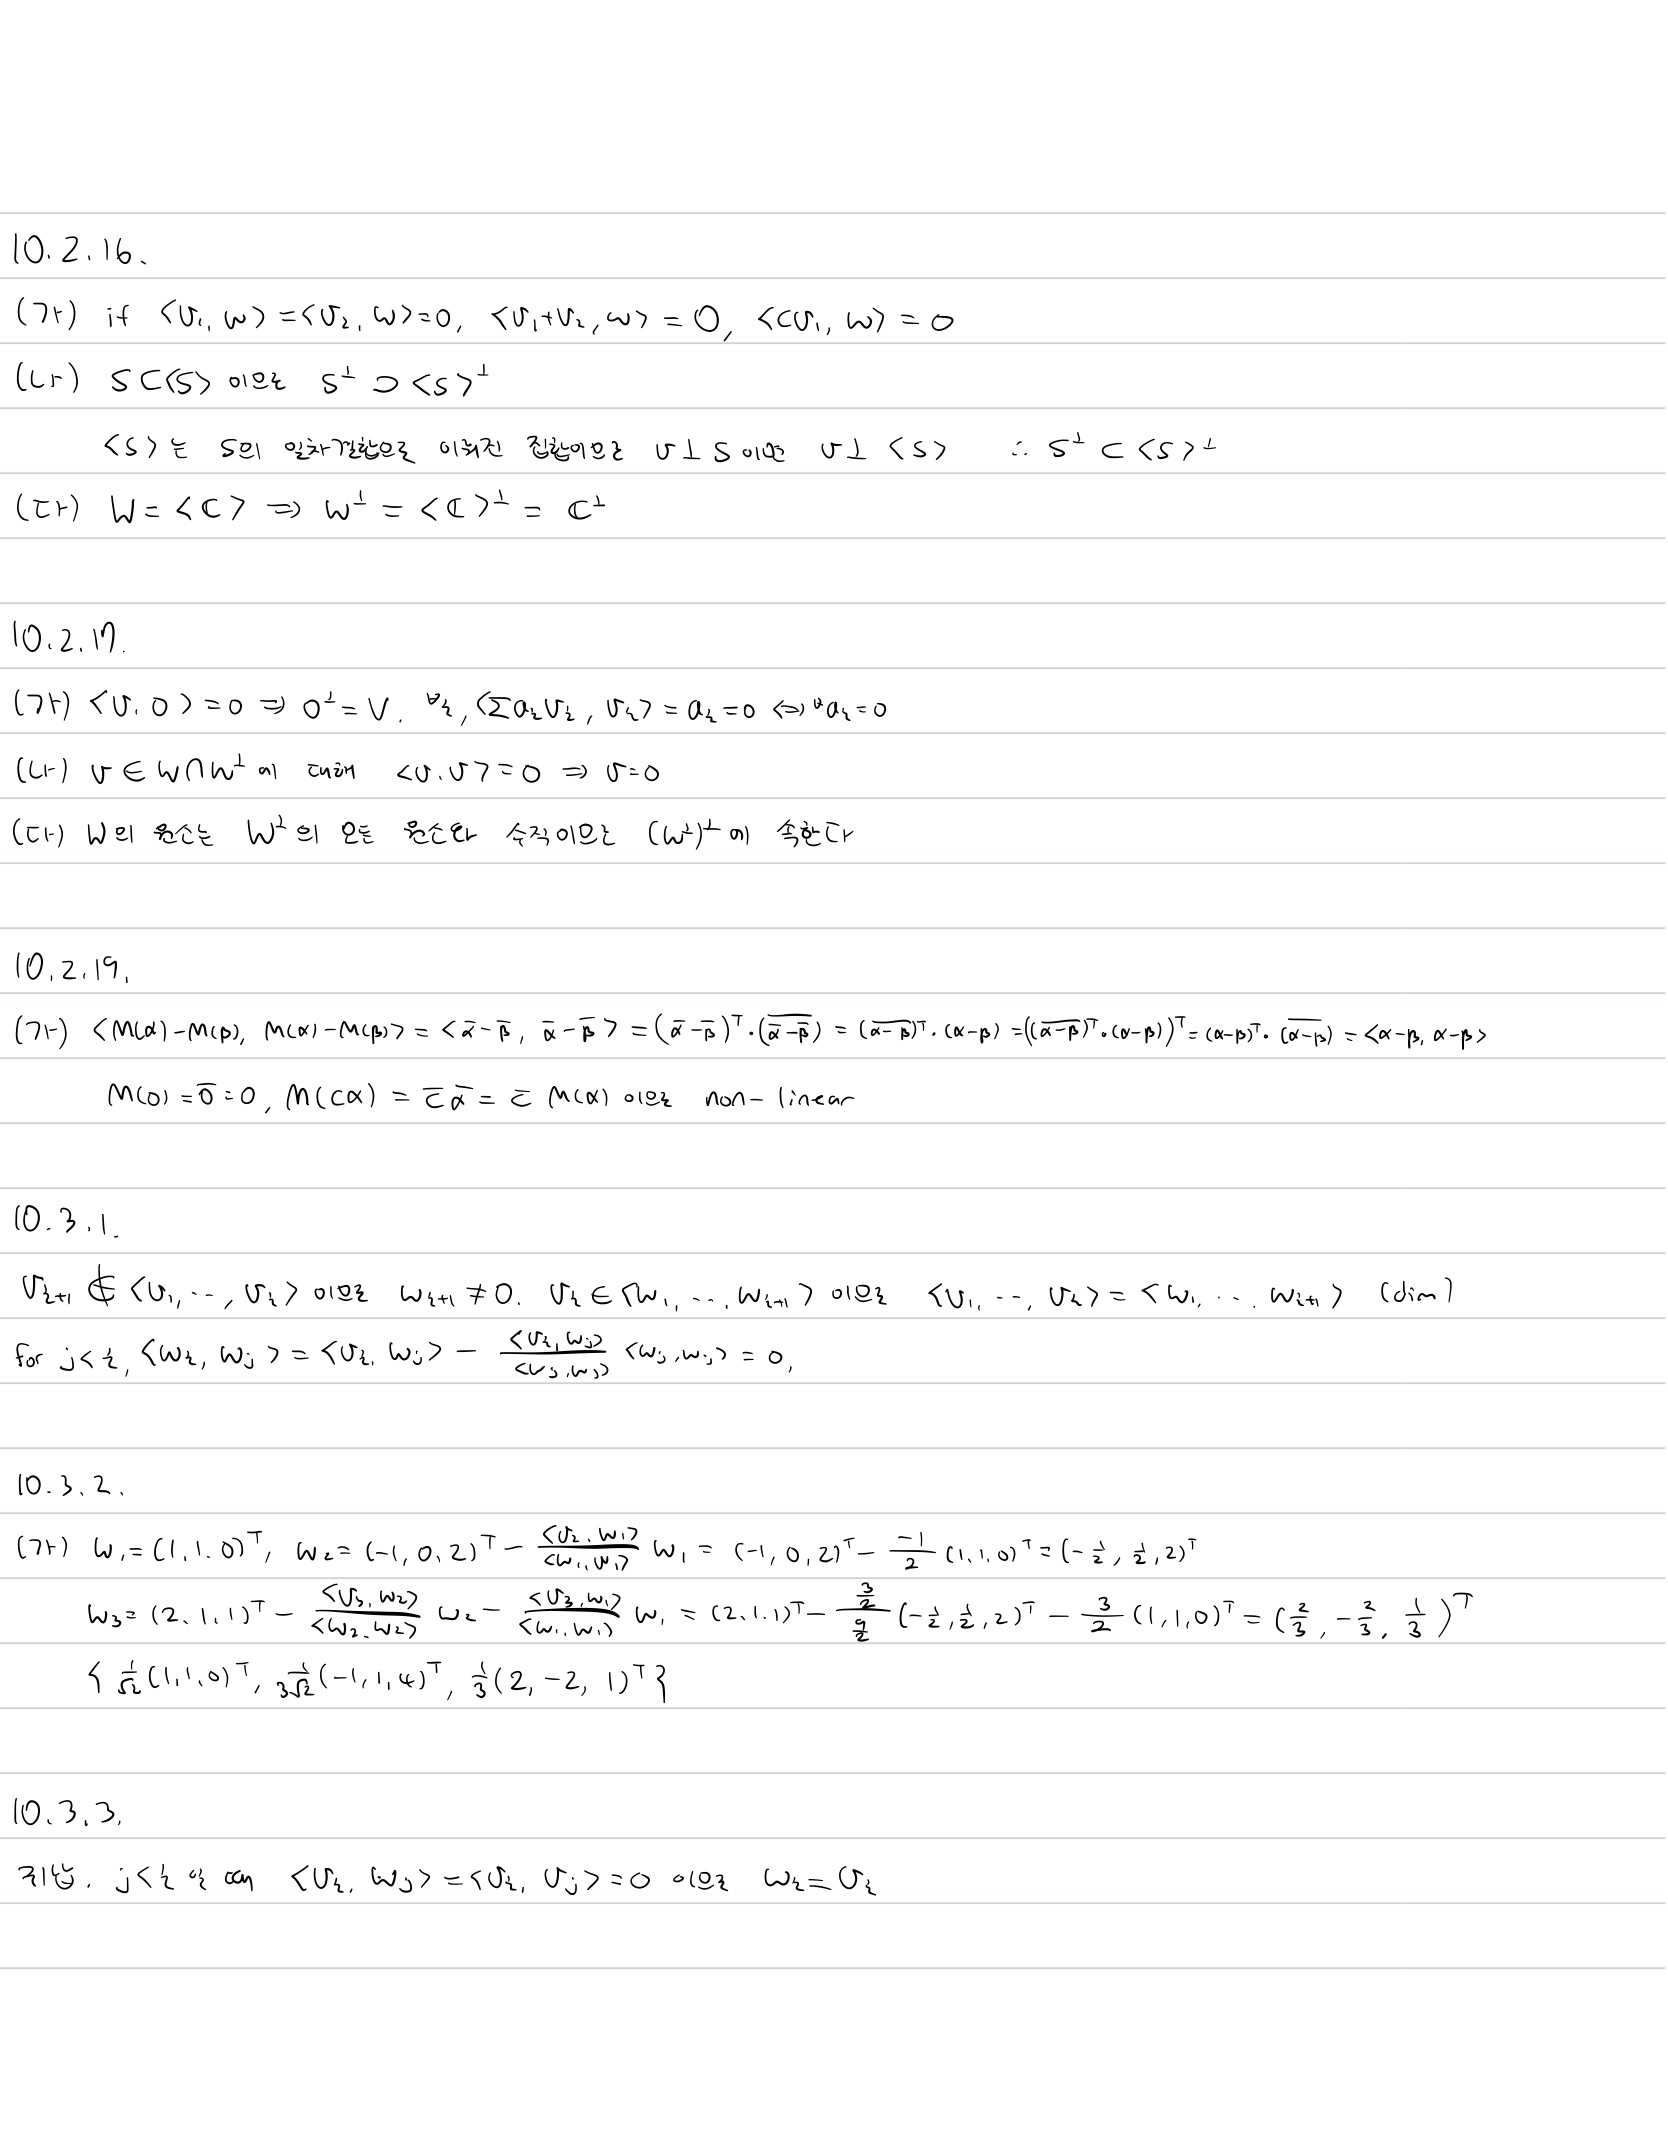 10.2.16.
(가) if <v₁, w> = <v₂, w> = 0, <v₁+v₂, w> = 0, <cv₁, w> = 0
(나) S⊂<S> 이므로 S^⊥ ⊃ <S>^⊥
<S>는 S의 일차결합으로 이뤄진 집합이므로 v⊥S이면 v⊥<S> ∴ S^⊥ ⊂ <S>^⊥
(다) W = <ℂ> ⇒ W^⊥ = <ℂ>^⊥ = ℂ^⊥
10.2.17.
(가) <v, 0> = 0 ⇒ 0^⊥ = V. ∀i, <∑aᵢvᵢ, vᵢ> = aᵢ = 0 ⇔ ∀aᵢ = 0
(나) v ∈ W∩W^⊥에 대해 <v, v> = 0 ⇒ v = 0
(다) W의 원소는 W^⊥의 모든 원소와 수직이므로 (W^⊥)^⊥에 속한다
10.2.19.
(가) <M(α)-M(β), M(α)-M(β)> = <ᾱ-β̄, ᾱ-β̄> = (ᾱ-β̄)^T·(\overline{ᾱ-β̄}) = (\overline{α-β})^T·(α-β) = ((\overline{α-β})^T·(α-β))^T = (α-β)^T·(\overline{α-β}) = <α-β, α-β>
M(0) = \overline{0} = 0, M(cα) = c̄ᾱ = c̄ M(α) 이므로 non-linear
10.3.1.
vᵢ₊₁ ∉ <v₁, ..., vᵢ> 이므로 wᵢ₊₁ ≠ 0. vᵢ ∈ <w₁, ..., wᵢ₊₁> 이므로 <v₁, ..., vᵢ> = <w₁, ... wᵢ₊₁> (dim)
for j<i, <wᵢ, wⱼ> = <vᵢ, wⱼ> - \frac{<vᵢ, wⱼ>}{<wⱼ, wⱼ>} <wⱼ, wⱼ> = 0,
10.3.2.
(가) w₁ = (1, 1, 0)^T, w₂ = (-1, 0, 2)^T - \frac{<v₂, w₁>}{<w₁, w₁>} w₁ = (-1, 0, 2)^T - \frac{-1}{2} (1, 1, 0)^T = (-½, ½, 2)^T
w₃ = (2, 1, 1)^T - \frac{<v₃, w₂>}{<w₂, w₂>} w₂ - \frac{<v₃, w₁>}{<w₁, w₁>} w₁ = (2, 1, 1)^T - \frac{3/2}{9/2} (-½, ½, 2)^T - \frac{3}{2} (1, 1, 0)^T = (⅔, -⅔, ⅓)^T
{ \frac{1}{√2}(1, 1, 0)^T, \frac{1}{3√2}(-1, 1, 4)^T, ⅓(2, -2, 1)^T }
10.3.3.
귀납. j<i 일 때 <vᵢ, wⱼ> = <vᵢ, vⱼ> = 0 이므로 wᵢ = vᵢ